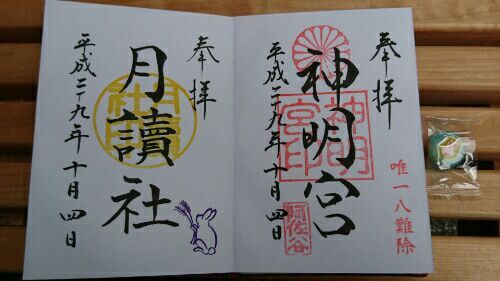 奉拝
神明宮
平成二十九年十月四日
唯一八難除
神明宮印
阿佐谷
奉拝
月讀社
平成二十九年十月四日